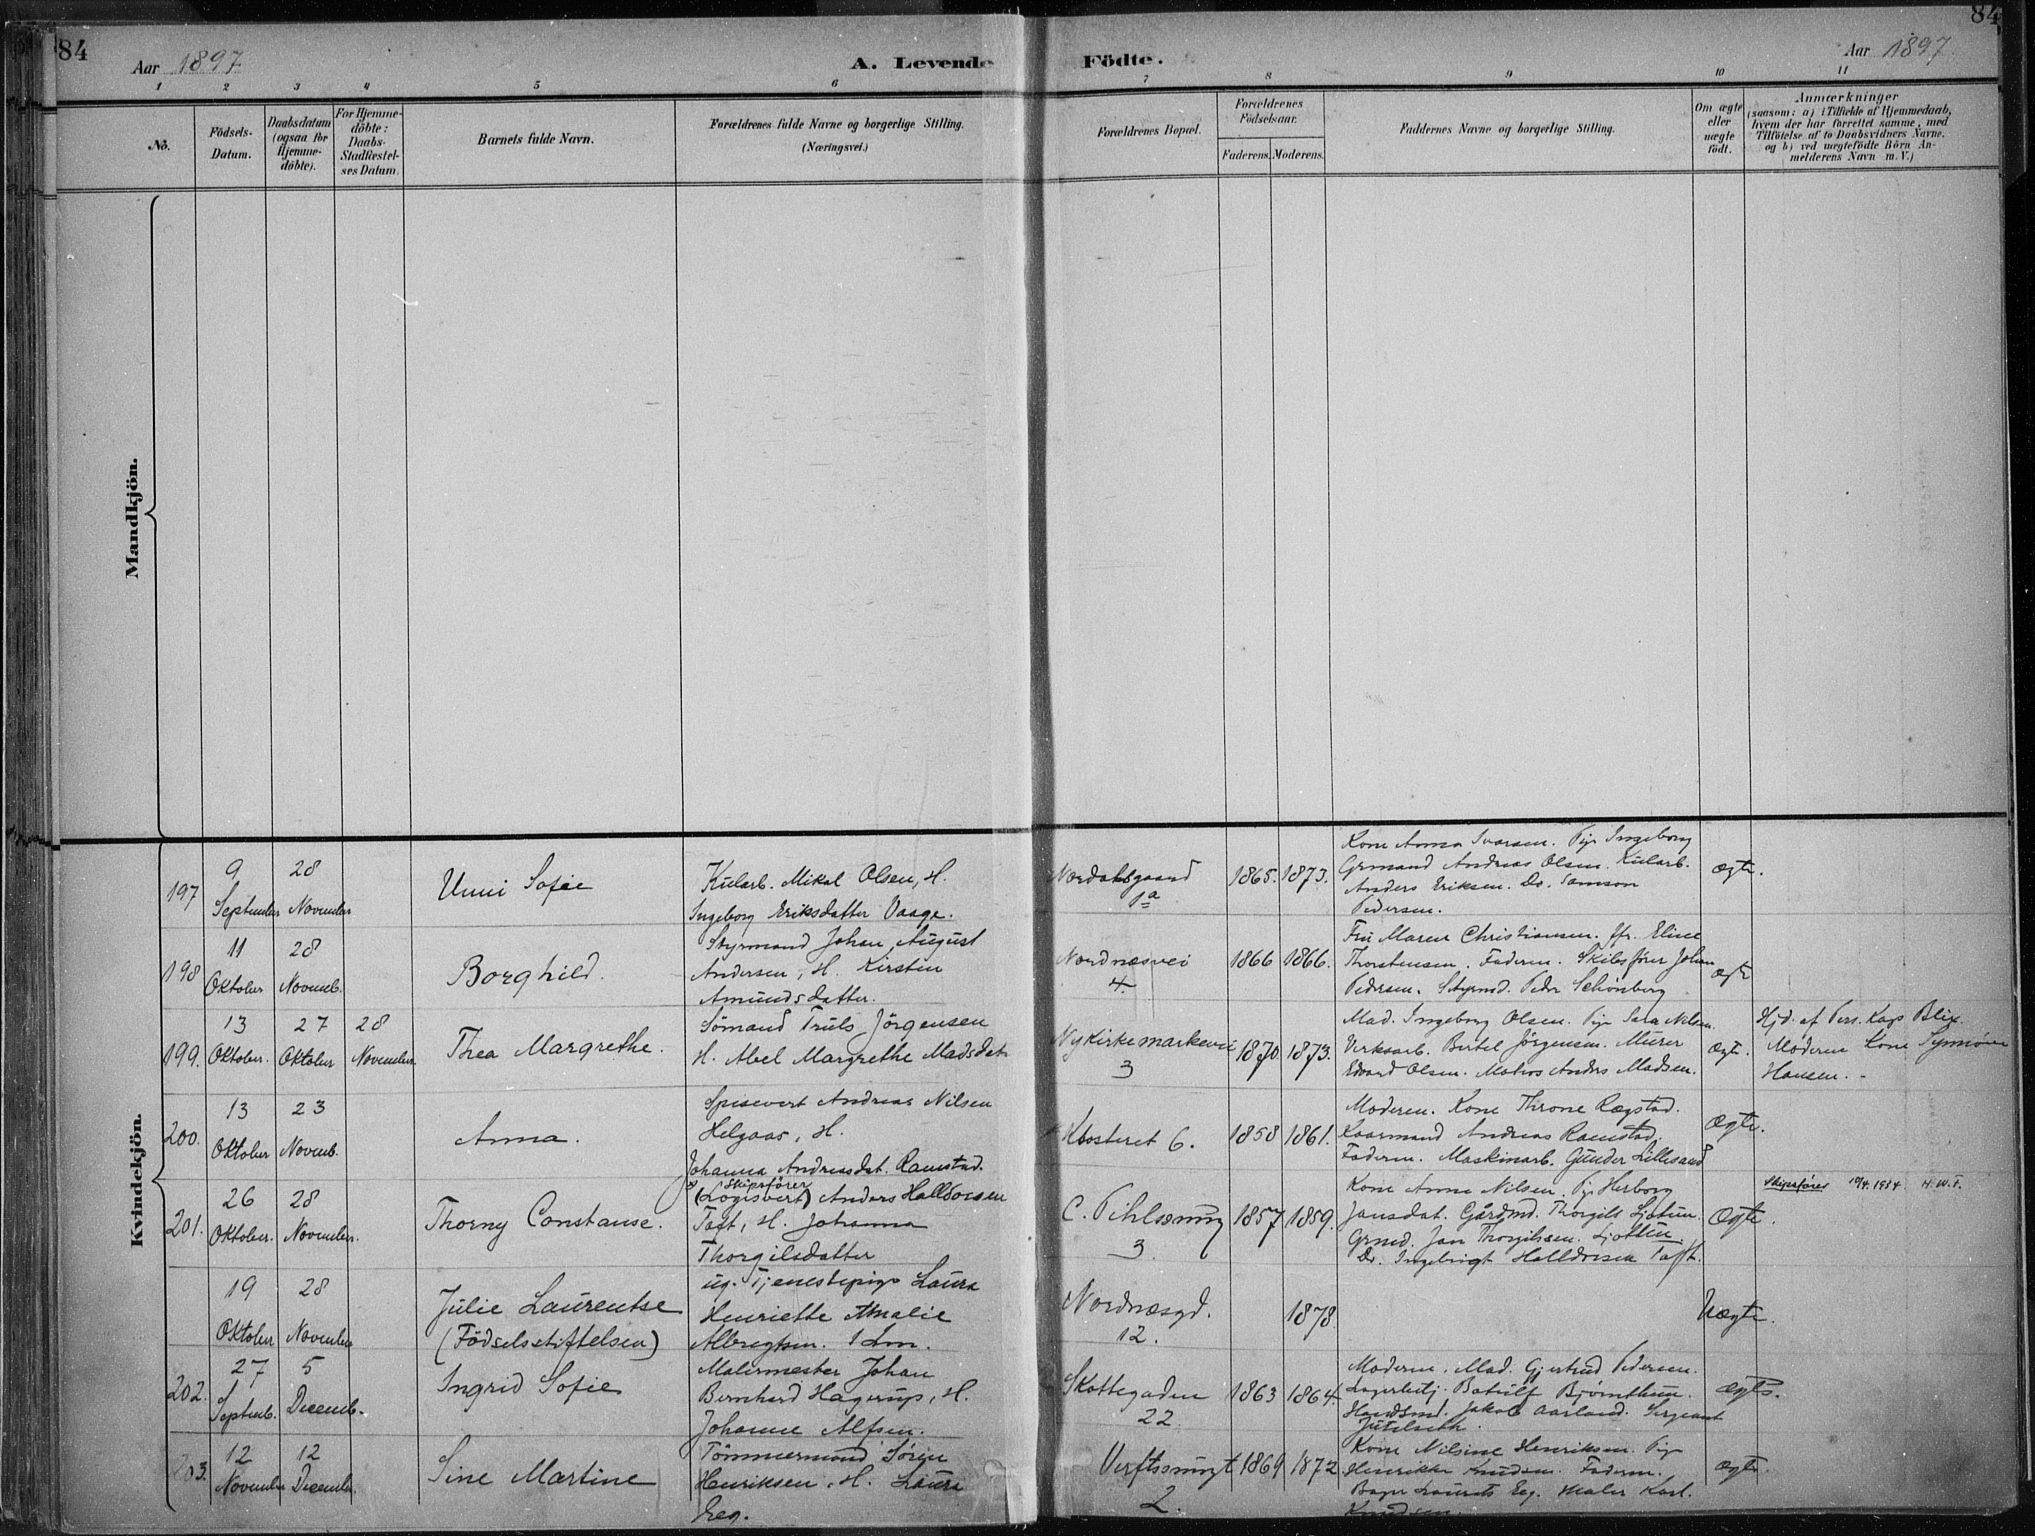 84
84
Aar 1897
A. Levende Födte.
Aar 1897
1 2 3 4 5 6 7 8 9 10 11
No.
Födsels-
Datum.
Daabsdatum
(ogsaa for
Hjemme-
döbte).
For Hjemme-
döbte:
Daabs-
Stadfæstel-
ses Datum.
Barnets fulde Navn.
Forældrenes fulde Navne og borgerlige Stilling.
(Næringsvei.)
Forældrenes Bopæl.
Forældrenes
Födselsaar.
Faderens. Moderens.
Faddernes Navne og borgerlige Stilling.
Om ægte
eller
uægte
födt.
Anmærkninger
(saasom: a) i Tilfælde af Hjemmedaab,
hvem der har forrettet samme, med
Tilföielse af to Daabsvidners Navne.
og b) ved uægtefödte Börn An-
melderens Navn m. V.)
Mandkjön.
Kvindekjön.
197
9
September
28
November
Unni Sofie
Kularb. Mikal Olsen, H.
Ingeborg Eriksdatter Vaage.
Nordahlsgaard
1a
1865. 1873.
Kone Anna Ivarsen. Pige Ingeborg
Grmand Andreas Olsen. Kularb.
Anders Eriksen. Do. Samson
Pedersen.
Ægte.
198
11
Oktober
28
Novemb.
Borghild.
Styrmand Johan August
Andersen, H. Kirsten
Amundsdatter.
Nordnæsvei
4.
1866 1866.
Fru Maren Christiansen. Ffr. Eline
Thorstensen. Faderen. Skibsfører Johan
Pedersen. Styrmd. Peder Schönberg
Ægte
199.
13
Oktober.
27
Oktober
28
November.
Thea Margrethe.
Sömand Truls Jörgensen
H. Abel Margrethe Madsdat.
Nykirkemarkevei
3
1870. 1873.
Mad. Ingeborg Olsen. Pige Sara Nilsen.
Verksarb. Bertel Jörgensen. Murer
Edvard Olsen. Matros Anders Madsen.
Ægte.
Hjd. af Pers. Kap. Blix
Moderen Kone Synnöve
Hansen. -
200.
13
Oktober
23
Novemb.
Anna.
Spisevert Andreas Nilsen
Helgaas, H.
Johanna Andreasdat. Ramstad.
Klosteret 6.
1858 1861.
Moderen. Kone Throne Rægstad.
Kaarmand Andreas Ramstad.
Faderen. Maskinarb. Gunder Lillesand
Ægte.
201.
26
Oktober.
28
November.
Thorny Constanse.
Skipsfører
(Logisvert) Anders Halldorsen
Toft, H. Johanna
Thorgilsdatter
C. Pihlssmug
3.
1857 1859.
Kone Anna Nilsen. Pige Herborg
Jansdat. Gårdmd. Thorgils Ljotun.
Grmd. Jan Thorgilsen. Ljottun.
Do. Ingebrigt Halldorsen Toft.
Ægte.
Skipsfører 10/4. 1934 H. W. F.
19
Oktober
28
November
Julie Laurentse
(Födselsstiftelsen)
ug. Tjenestepige Laura
Henriette Amalie
Albregtsen. 1 Lm.
Nordnæsgd.
12.
1878.
Uægte.
202.
27
Septemb.
5
Decemb.
Ingrid Sofie
Malermester Johan
Bernhard Hagerup, H.
Johanne Alfsen.
Skottegaden
22.
1863 1864.
Moderen. Mad. Gjertrud Pedersen.
Lagerbetj. Botulf Bjørnthun.
Handsmd. Jakob Aarland. Sergeant
Jutelseth.
Ægte.
203.
12
November
12
December
Sine Martine
Tömmermand Sören
Henriksen, H. Laura
Eeg.
Verftssmugt
2.
1869 1872
Kone Nilsine Henriksen. Pige
Henrikke Knudsen. Faderen.
Bager Laurits Eeg. Maler Karl.
Knudsen.
Ægte.